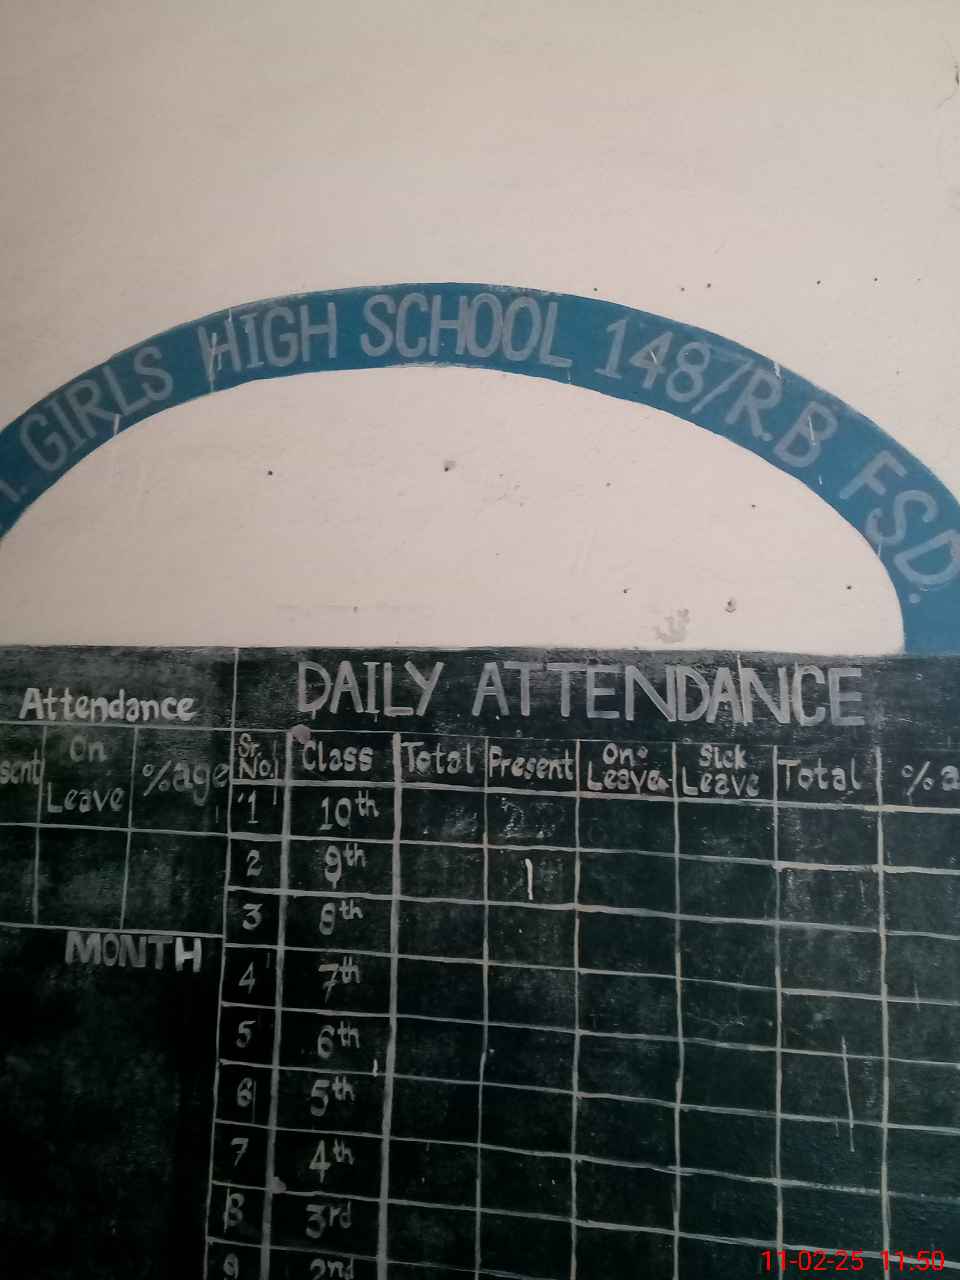 GIRLS HIGH SCHOOL 148/R.B FSD.
Attendance
On Leave %age
MONTH
DAILY ATTENDANCE
Sr. No. Class Total Present On Leave Sick Leave Total
1 10th
2 9th
3 8th
4 7th
5 6th
6 5th
7 4th
8 3rd
9 2nd
11-02-25 11:50